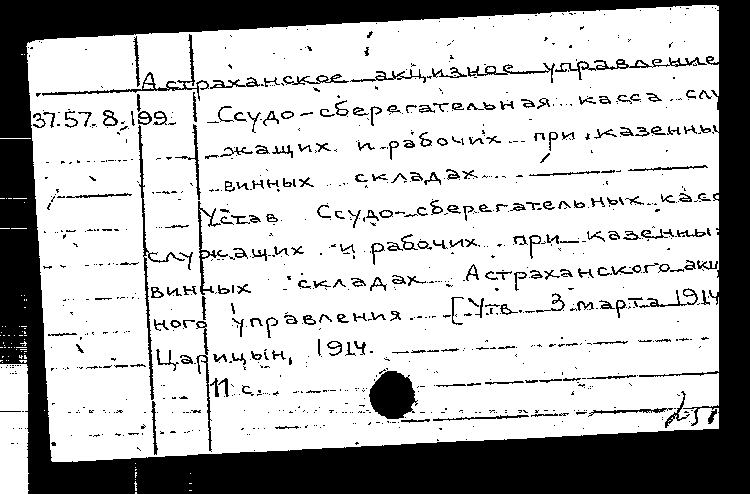 Астраханское акцизное управление
37.57.8.199. Ссудо-сберегательная касса слу
жащих и рабочих при казенны
винных складах
Устав Ссудо-сберегательных касс
служащих и рабочих при казенны
винных складах Астраханского акц
ного управления [Утв. 3 марта 1914
Царицын, 1914.
11 с.